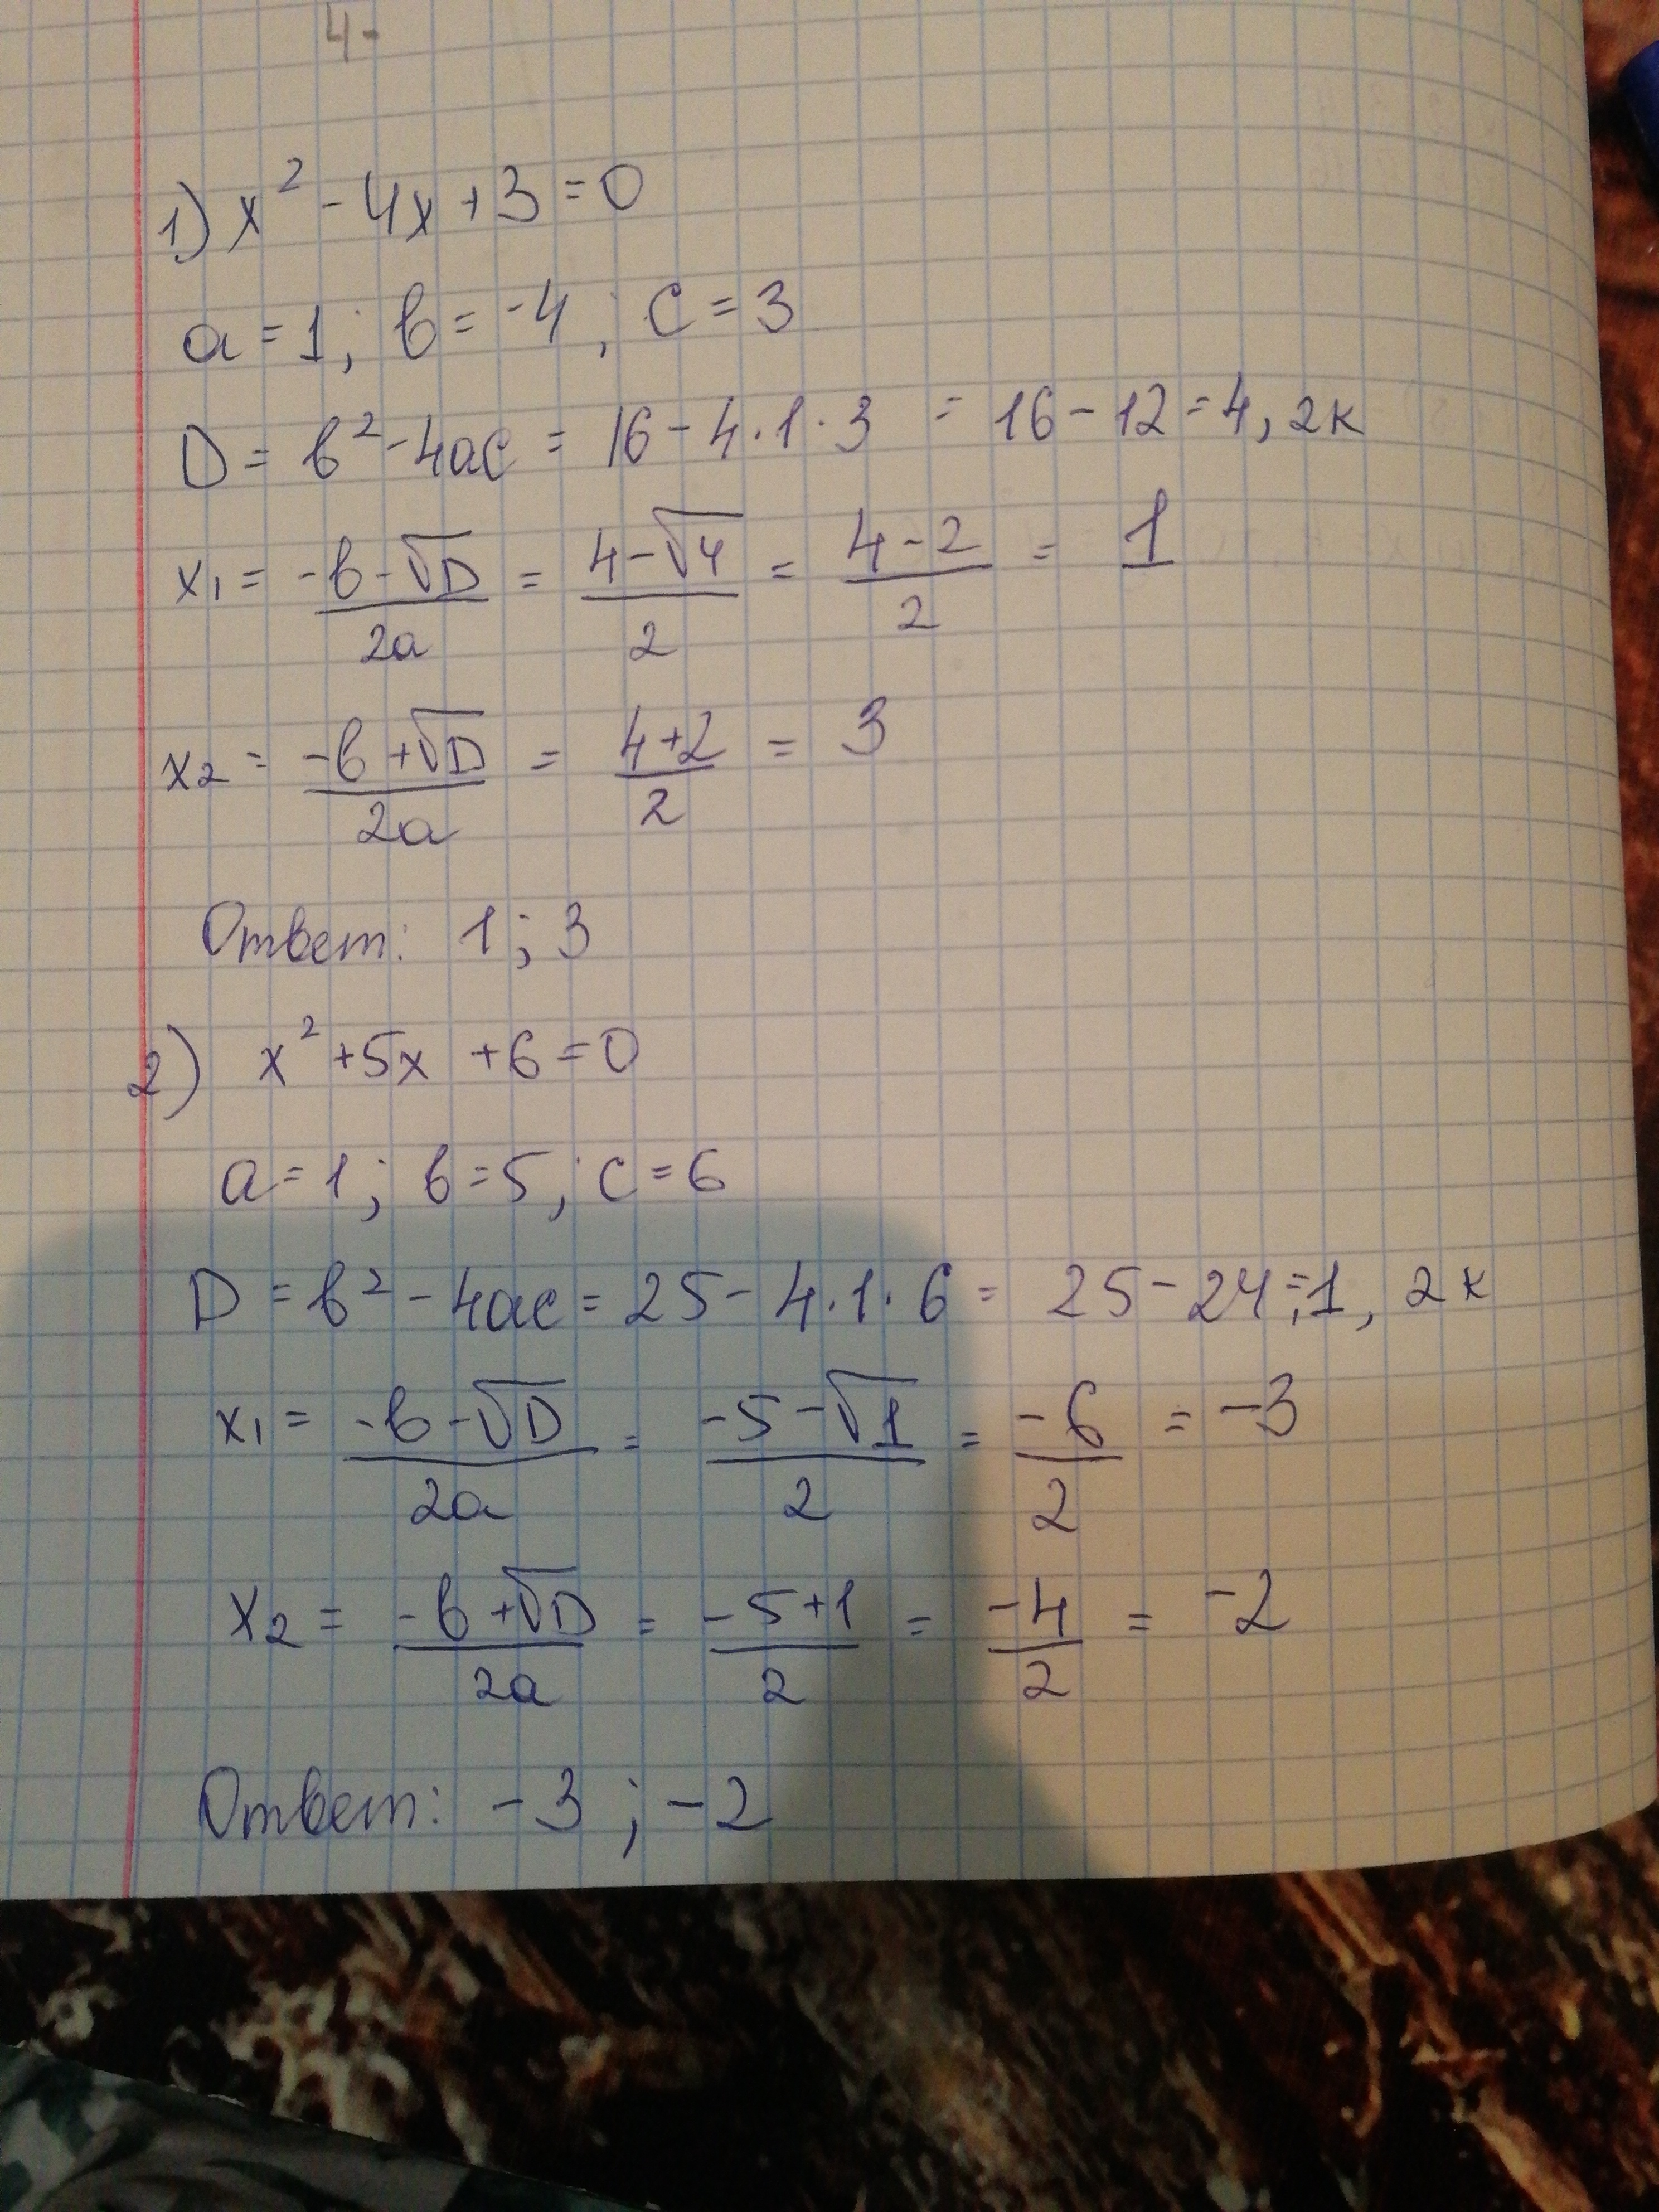 4-
1) x² - 4x + 3 = 0
a = 1; b = -4; c = 3
D = b² - 4ac = 16 - 4·1·3 = 16 - 12 = 4, 2к
x₁ = (-b - √D)/2a = (4 - √4)/2 = (4 - 2)/2 = 1
x₂ = (-b + √D)/2a = (4 + 2)/2 = 3
Ответ: 1; 3
2) x² + 5x + 6 = 0
a = 1; b = 5; c = 6
D = b² - 4ac = 25 - 4·1·6 = 25 - 24 = 1, 2к
x₁ = (-b - √D)/2a = (-5 - √1)/2 = -6/2 = -3
x₂ = (-b + √D)/2a = (-5 + 1)/2 = -4/2 = -2
Ответ: -3; -2